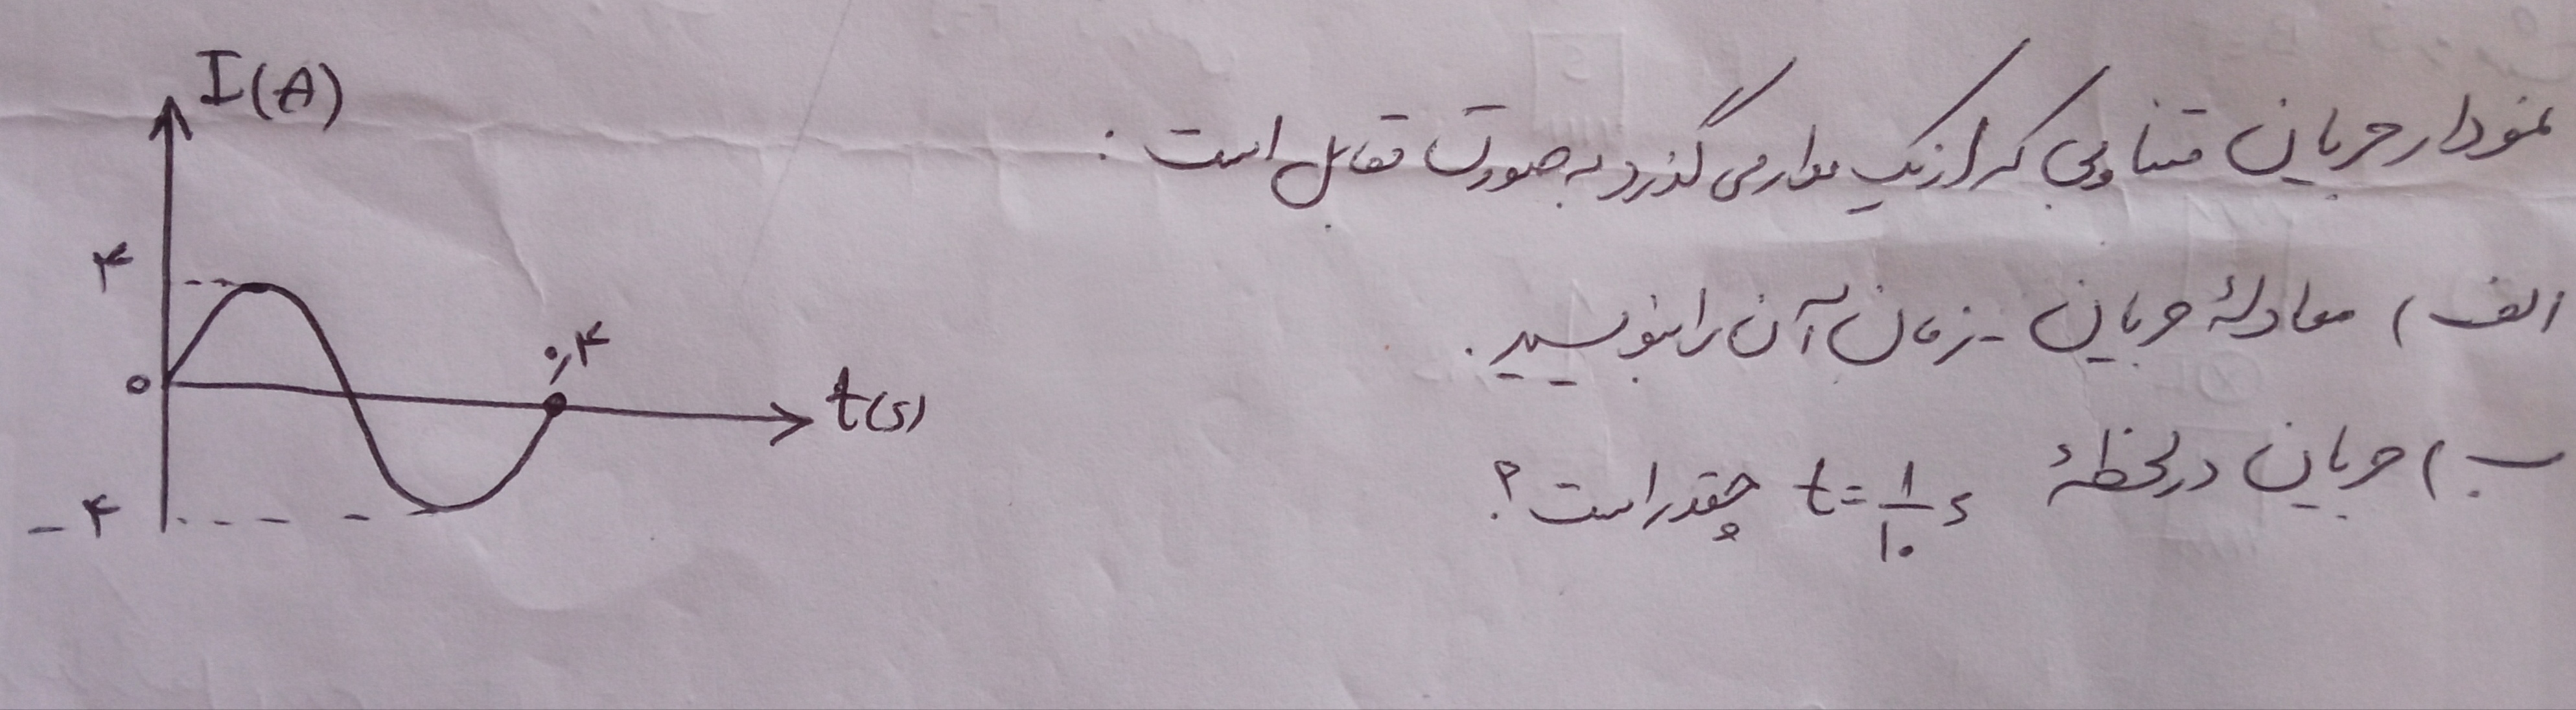 I(A)
نمودار جریان متناوبی که از یک مدار می گذرد به صورت مقابل است :
۴
الف) معادلهٔ جریان - زمان آن را بنویسید.
۰٫۴
۰
t(s)
ب) جریان در لحظهٔ t = ۱/۱۰ s چقدر است؟
-۴